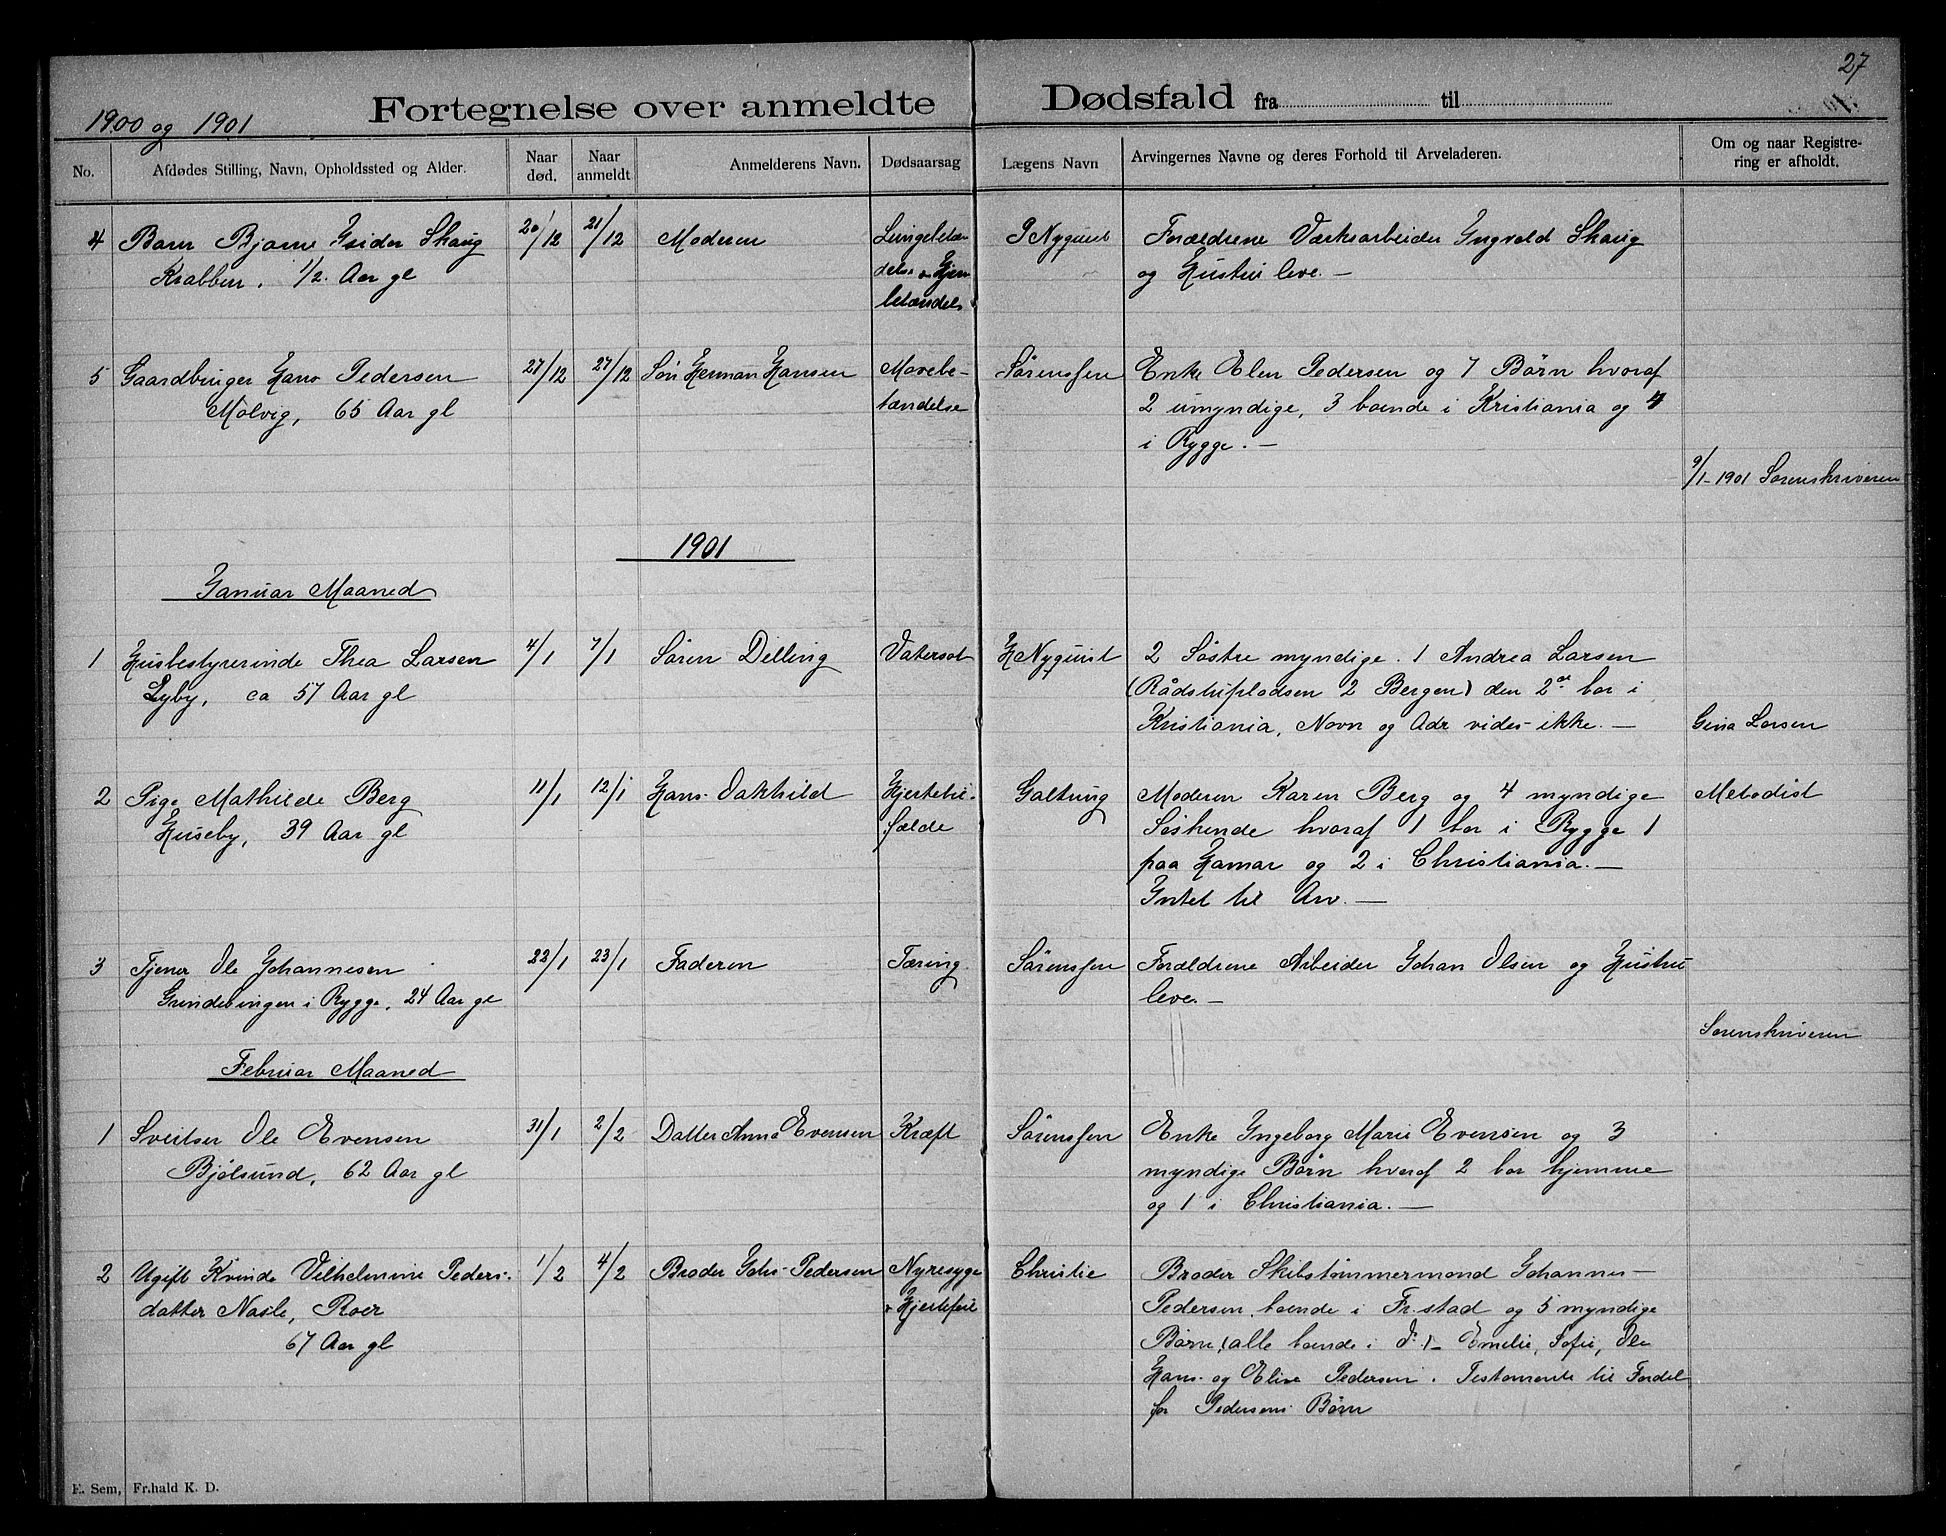 27
1900 og 1901
Fortegnelse over anmeldte Dødsfald fra til
No.
Afdødes Stilling, Navn, Opholdssted og Alder.
Naar død.
Naar anmeldt
Anmelderens Navn.
Dødsaarsag
Lægens Navn
Arvingernes Navne og deres Forhold til Arveladeren.
Om og naar Registre-
ring er afholdt.
4 Barn Bjarne Isider Skaug 20/12 21/12 Moderen Lungebetæn- Nyquist Forældrene Værksarbeider Ingvald Skaug
Krabben, 1/2 Aar gl delse & Hjer- og Hustru leve. —
betændel.
5 Gaardbruger Hans Pedersen 27/12 27/12 Søn Herman Hansen Mavebe- Sørenssen Enke Elen Pedersen og 7 Børn hvoraf
Molvig, 65 Aar gl tændelse 2 umyndige, 3 boende i Kristiania og 4
i Rygge. —
9/1-1901 Sorenskriveren
1901
Januar Maaned
1 Husbestyrerinde Thea Larsen 4/1 7/1 Søren Dilling Vatersot H Nyquist 2 Søstre myndige. 1 Andrea Larsen
Lyby, ca 57 Aar gl (Rådstupladsen 2 Bergen) den 2den bor i
Kristiania, Navn og Adr vides ikke. — Gina Larsen
2 Pige Mathilde Berg 11/1 12/1 Hans Dakhild Hjertetil- Galtung Moderen Karen Berg og 4 myndige Metodist
Huseby, 39 Aar gl fælde Søskende hvoraf 1 bor i Rygge 1
paa Hamar og 2 i Christiania. —
Intet til Arv. —
3 Tjener Ole Johannesen 22/1 23/1 Faderen Tæring Sørenssen Forældrene Arbeider Johan Olsen og Hustru
Grindebingen i Rygge, 24 Aar gl leve. —
Sorenskriveren
Februar Maaned
1 Sveitser Ole Evensen 31/1 2/2 Datter Anna Evensen Kræft Sørenssen Enke Ingeborg Marie Evensen og 3
Bjølsund, 62 Aar gl myndige Børn hvoraf 2 bor hjemme
og 1 i Christiania. —
2 Ugift Kvinde Vilhelmine Peders- 1/2 4/2 Broder Johs Pedersen Nyresyge Christie Broder Skibstømmermand Johannes
datter Nasle, Roer & Hjertefeil Pedersen boende i Fr.stad og 5 myndige
67 Aar gl Børn, (alle boende i D.) Emilie, Sofie, Ole
Hans og Elise Pedersen. Testamente til Fordel
for Pedersens Børn
E. Sem, Fr.hald K. D.